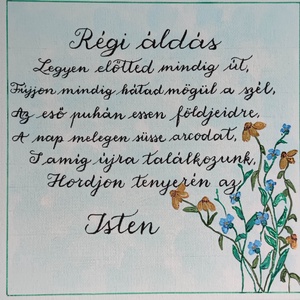 Régi áldás
Legyen előtted mindig út,
Fújjon mindig hátad mögül a szél,
Az eső puhán essen földjeidre,
A nap melegen süsse arcodat,
S amíg újra találkozunk,
Hordjon tenyerén az
Isten